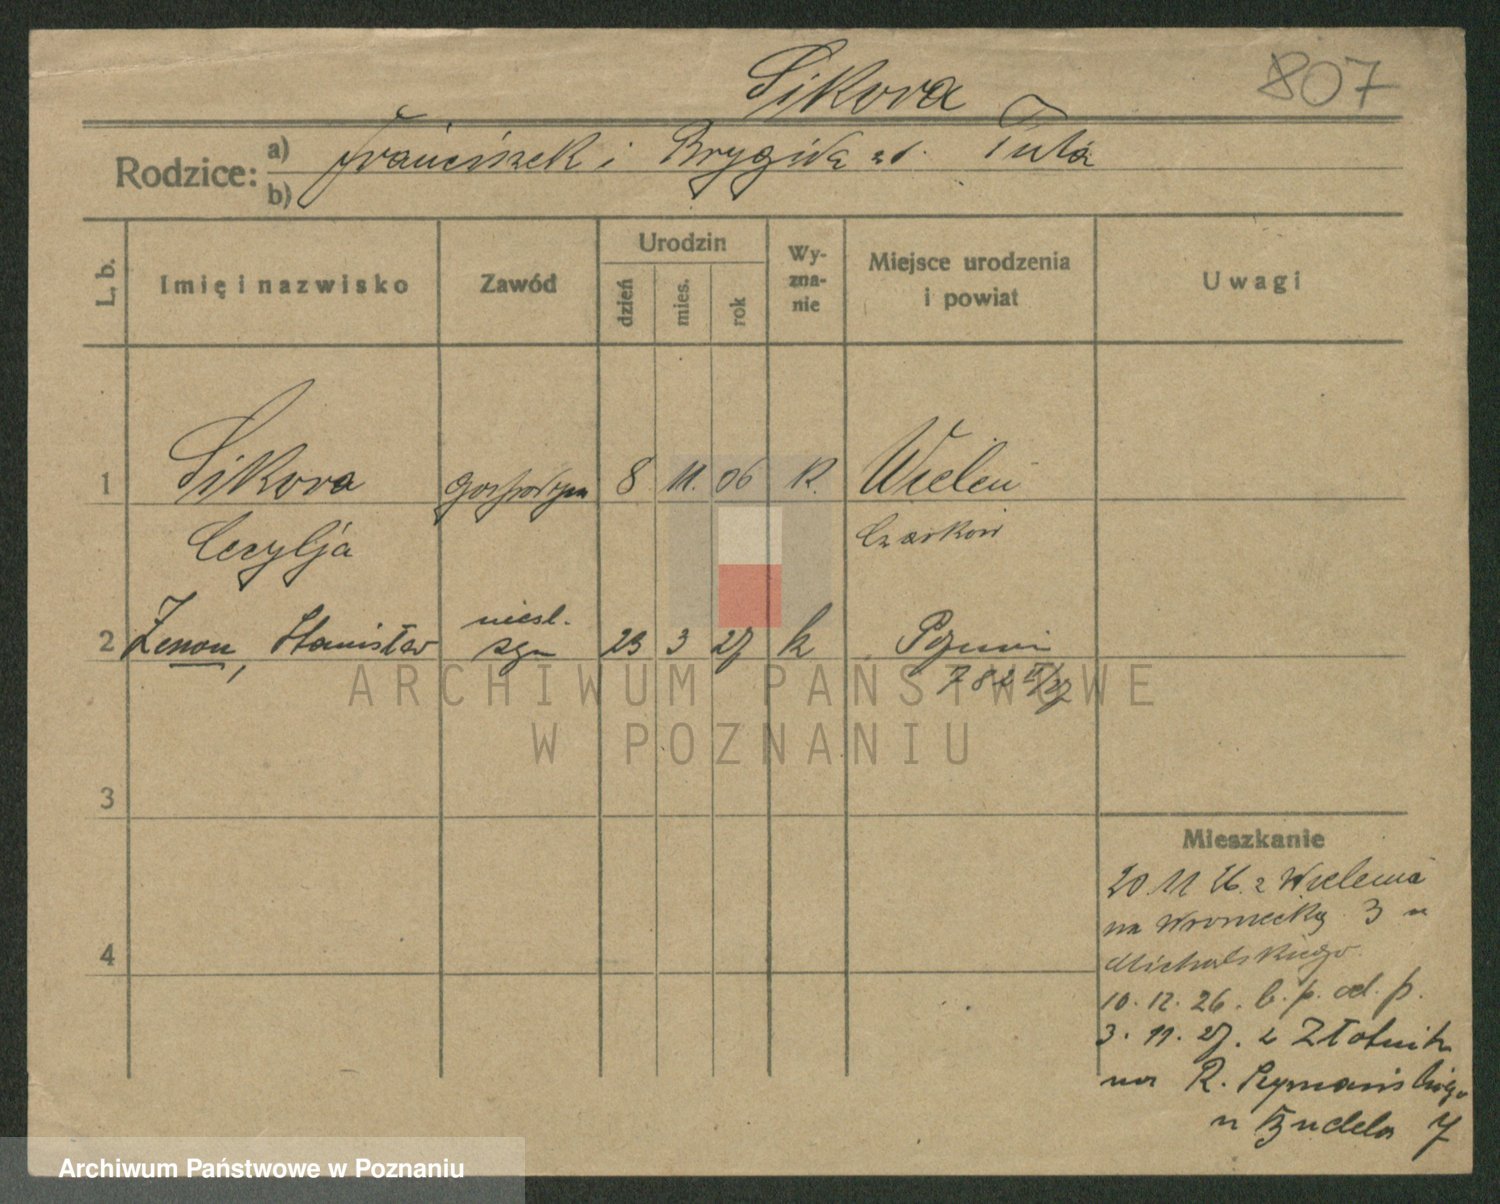 Sikora
807
Rodzice:
a) Franciszek i Brygida zd. Tuta
b)
L. b.
Imię i nazwisko
Zawód
Urodzin
dzień
mies.
rok
Wy-
zna-
nie
Miejsce urodzenia
i powiat
Uwagi
1 Sikora 8 11. 06 k. Wieleń
Cecylja Czarków
2 Zenon, Stanisław nieśl. 23 3 27 k Poznań
syn 782 II/27
ARCHIWUM PAŃSTWOWE
W POZNANIU
3
4
Mieszkanie
20 11 26. z Wielenia
na Wroniecką 3 u
Michalskiego.
10. 12. 26. b. p. od. p.
3. 11. 27. z Złotnik
na R. Szymańskiego
u 7
Archiwum Państwowe w Poznaniu